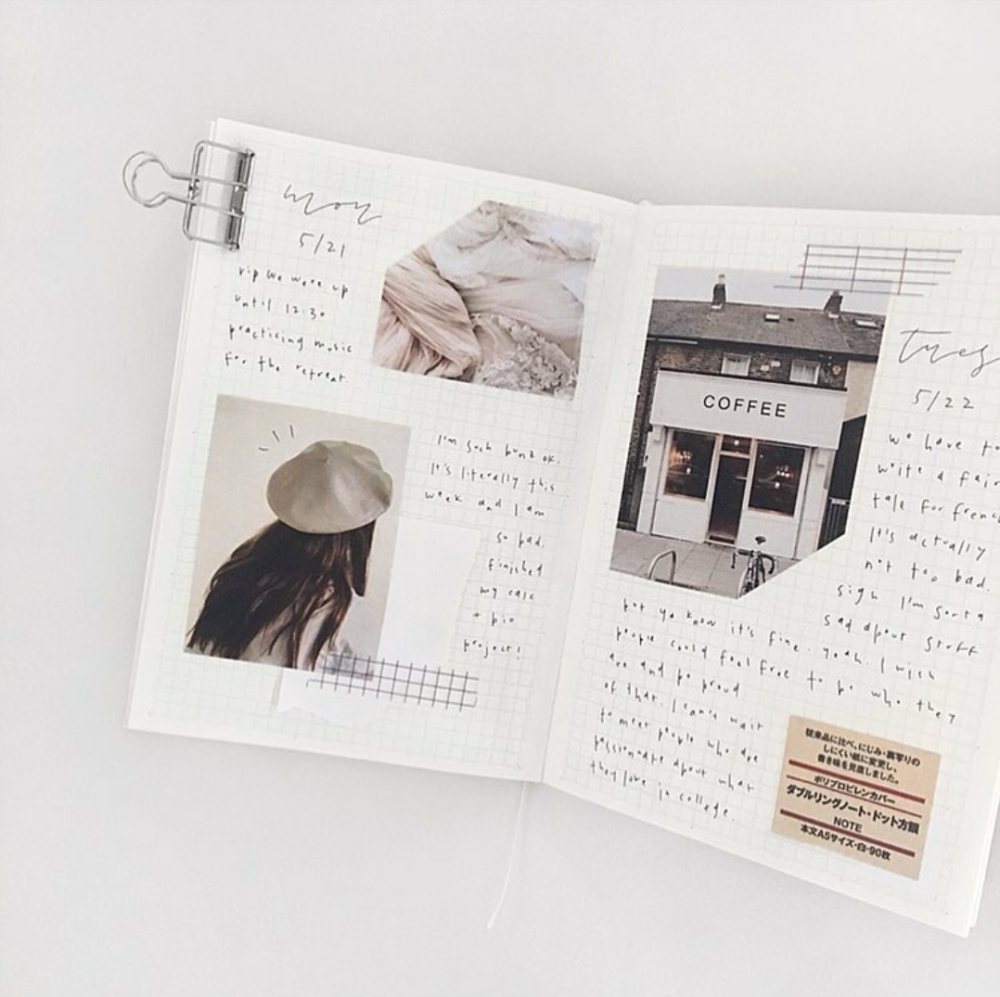 mon
5/21
rip we were up
until 12:30
practicing music
for the retreat.
I'm such bunz ok.
It's literally this
week and I am
so bad.
finished
my calc
+ bio
project!
COFFEE
tues
5/22
we have to
write a fairy
tale for french
It's actually
not too bad.
sigh I'm sorta
sad about stuff
but ya know it's fine. yeah. I wish
people could feel free to be who they
are and be proud
of that. I can't wait
to meet people who are
passionate about what
they love in college.
従来品に比べ、にじみ・裏写りの
しにくい紙に変更し、
書き味を見直しました。
ポリプロピレンカバー
ダブルリングノート・ドット方眼
NOTE
本文A5サイズ・白・90枚